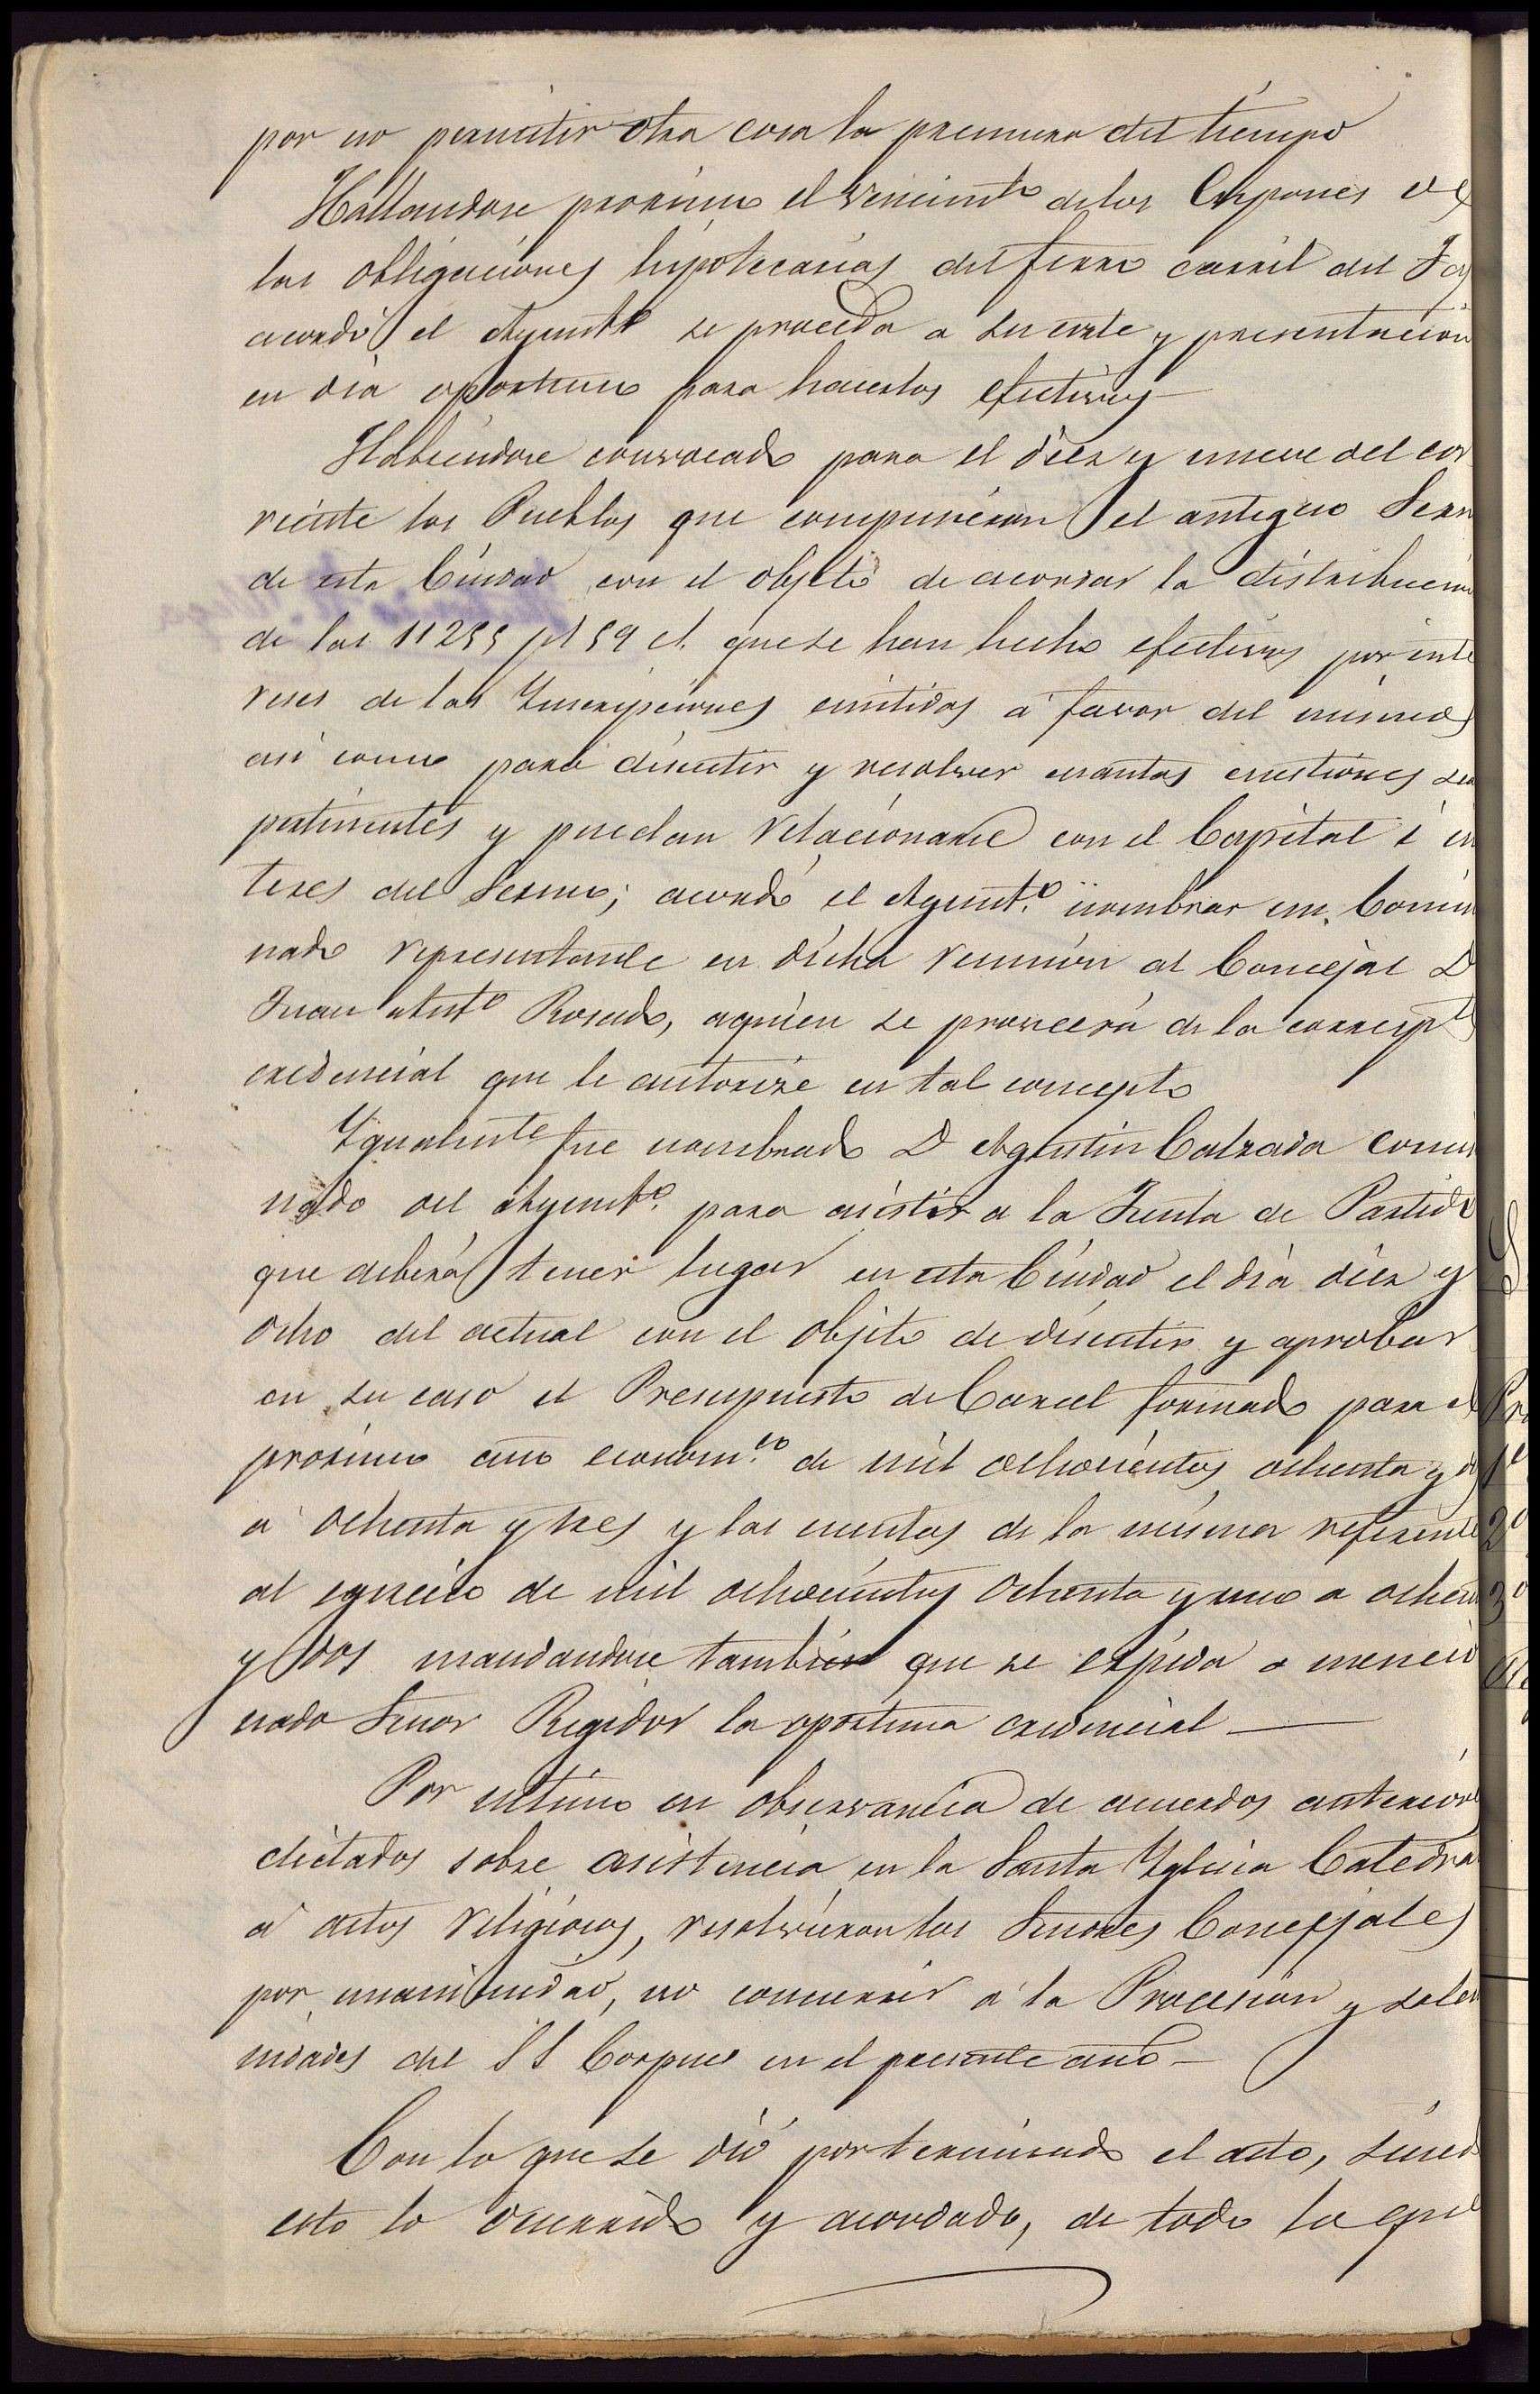 por no permitir otra cosa la premura del tiempo
Hallandose proximo el vencimto de los Cupones de
las obligaciones hipotecarias del ferro carril del Taj
acordó el Ayuntto se proceda a su corte y presentacion
en dia oportuno para hacerlos efectivos
Habiendose convocado para el diez y nueve del cor
riente los Pueblos que compusieron el antiguo Sexm
de esta Ciudad con el objeto de acordar la distribucion
de las 11255 pt 59 ct. que se han hecho efectivas por inte
reses de las Inscripciones emitidas á favor del mismo
asi como para discutir y resolver cuantas cuestiones sea
pertinentes y puedan relacionarse con el Capital é in
teres del Sexmo; acordó el Ayuntº nombrar su Comisio
nado representante en dicha reunion al Concejal D
Juan Antº Rosado, aquien se proveerá de la correspte
credencial que le autorize en tal concepto
Igualmte fue nombrado D Agustin Calzada comisio
nado del Ayuntº para asistir a la Junta de Partido
que deberá tener lugar en esta Ciudad el dia diez y
ocho del actual con el objeto de discutir y aprobar
en su caso el Presupuesto de Carcel formado para el
proximo año economco de mil ochocientos ochenta y
á ochenta y tres y las cuentas de la misma referente
al egercicio de mil ochocientos ochenta y uno a ochen
y dos mandandose tambien que se expida a mencio
nado Señor Regidor la oportuna credencial
Por ultimo en observancia de acuerdos anterior
dictados sobre asistencia en la Santa Yglesia Catedra
á actos religiosos, resolvieron los Señores Concejales
por unanimidad, no concurrir á la Procesion y solem
nidades del SS Corpus en el presente año
Con lo que se dió por terminado el acto, siend
esto lo ocurrido y acordado, de todo lo que